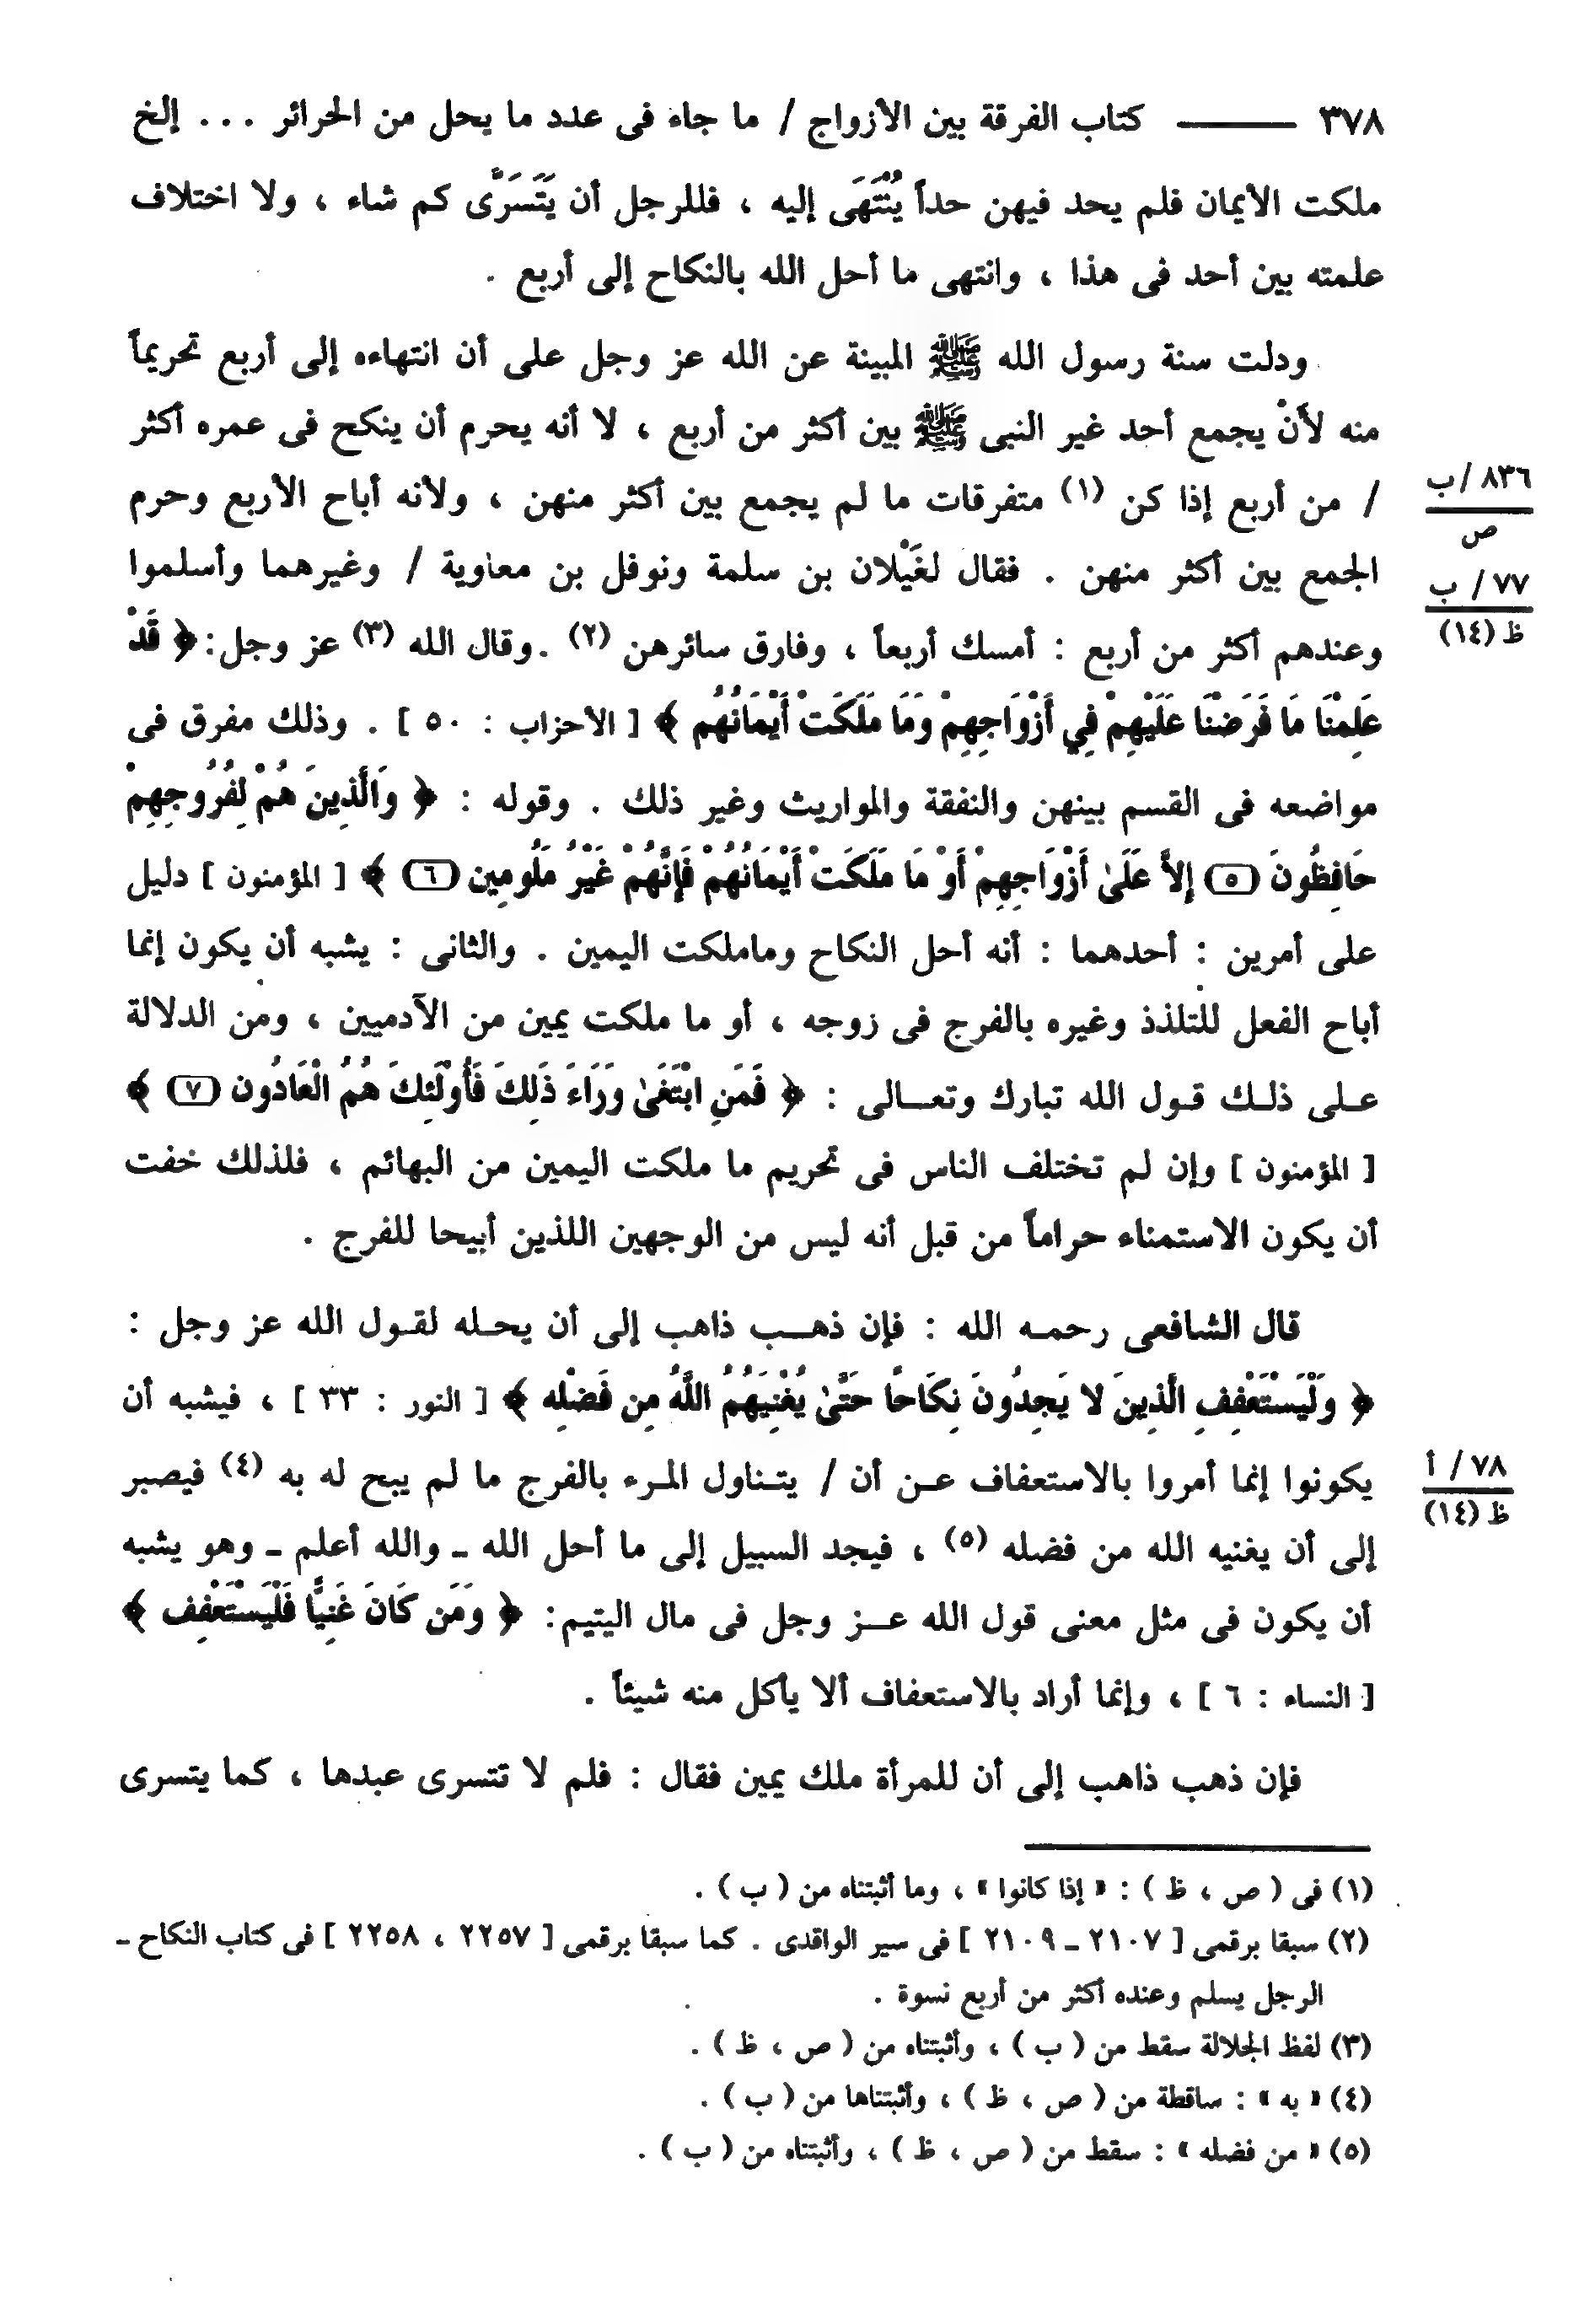 ٣٧٨ ــــــــ كتاب الفرقة بين الأزواج / ما جاء فى عدد ما يحل من الحرائر ... إلخ
ملكت الأيمان فلم يحد فيهن حداً يُنْتَهَى إليه ، فللرجل أن يَتَسَرَّى كم شاء ، ولا اختلاف
علمته بين أحد فى هذا ، وانتهى ما أحل الله بالنكاح إلى أربع .
ودلت سنة رسول الله ﷺ المبينة عن الله عز وجل على أن انتهاءه إلى أربع تحريماً
منه لأَنْ يجمع أحد غير النبى ﷺ بين أكثر من أربع ، لا أنه يحرم أن ينكح فى عمره أكثر
/ من أربع إذا كن (١) متفرقات ما لم يجمع بين أكثر منهن ، ولأنه أباح الأربع وحرم
٨٣٦ / ب
ص
الجمع بين أكثر منهن . فقال لغَيْلان بن سلمة ونوفل بن معاوية / وغيرهما وأسلموا
٧٧ / ب
ظ (١٤)
وعندهم أكثر من أربع : أمسك أربعاً ، وفارق سائرهن (٢) . وقال الله (٣) عز وجل: ﴿ قَدْ
عَلِمْنَا مَا فَرَضْنَا عَلَيْهِمْ فِي أَزْوَاجِهِمْ وَمَا مَلَكَتْ أَيْمَانُهُم ﴾ [ الأحزاب : ٥٠ ] . وذلك مفرق فى
مواضعه فى القسم بينهن والنفقة والمواريث وغير ذلك . وقوله : ﴿ وَالَّذِينَ هُمْ لِفُرُوجِهِمْ
حَافِظُونَ (٥) إِلاَّ عَلَىٰ أَزْوَاجِهِمْ أَوْ مَا مَلَكَتْ أَيْمَانُهُمْ فَإِنَّهُمْ غَيْرُ مَلُومِين (٦) ﴾ [ المؤمنون ] دليل
على أمرين : أحدهما : أنه أحل النكاح وماملكت اليمين . والثانى : يشبه أن يكون إنما
أباح الفعل للتلذذ وغيره بالفرج فى زوجه ، أو ما ملكت يمين من الآدميين ، ومن الدلالة
عـلى ذلـك قـول الله تبارك وتعـــالى : ﴿ فَمَنِ ابْتَغَىٰ وَرَاءَ ذَلِكَ فَأُوْلَئِكَ هُمُ الْعَادُون (٧) ﴾
[ المؤمنون ] وإن لم تختلف الناس فى تحريم ما ملكت اليمين من البهائم ، فلذلك خفت
أن يكون الاستمناء حراماً من قبل أنه ليس من الوجهين اللذين أبيحا للفرج .
قال الشافعى رحمـه الله : فإن ذهـــب ذاهب إلى أن يحـله لقـول الله عز وجل :
﴿ وَلْيَسْتَعْفِفِ الَّذِينَ لا يَجِدُونَ نِكَاحًا حَتَّىٰ يُغْنِيَهُمُ اللَّهُ مِن فَضْلِه ﴾ [ النور : ٣٣ ] ، فيشبه أن
يكونوا إنما أمروا بالاستعفاف عـن أن / يتـناول المـرء بالفرج ما لم يبح له به (٤) فيصبر
٧٨ / أ
ظ (١٤)
إلى أن يغنيه الله من فضله (٥) ، فيجد السبيل إلى ما أحل الله ـ والله أعلم ـ وهو يشبه
أن يكون فى مثل معنى قول الله عـــز وجل فى مال اليتيم: ﴿ وَمَن كَانَ غَنِيًّا فَلْيَسْتَعْفِف ﴾
[ النساء : ٦ ] ، وإنما أراد بالاستعفاف ألا يأكل منه شيئاً .
فإن ذهب ذاهب إلى أن للمرأة ملك يمين فقال : فلم لا تتسرى عبدها ، كما يتسرى
(١) فى ( ص ، ظ ) : « إذا كانوا » ، وما أثبتناه من ( ب ) .
(٢) سبقا برقمى [ ٢١٠٧ ـ ٢١٠٩ ] فى سير الواقدى . كما سبقا برقمى [ ٢٢٥٧ ، ٢٢٥٨ ] فى كتاب النكاح ـ
الرجل يسلم وعنده أكثر من أربع نسوة .
(٣) لفظ الجلالة سقط من ( ب ) ، وأثبتناه من ( ص ، ظ ) .
(٤) « به » : ساقطة من ( ص ، ظ ) ، وأثبتناها من ( ب ) .
(٥) « من فضله » : سقط من ( ص ، ظ ) ، وأثبتناه من ( ب ) .